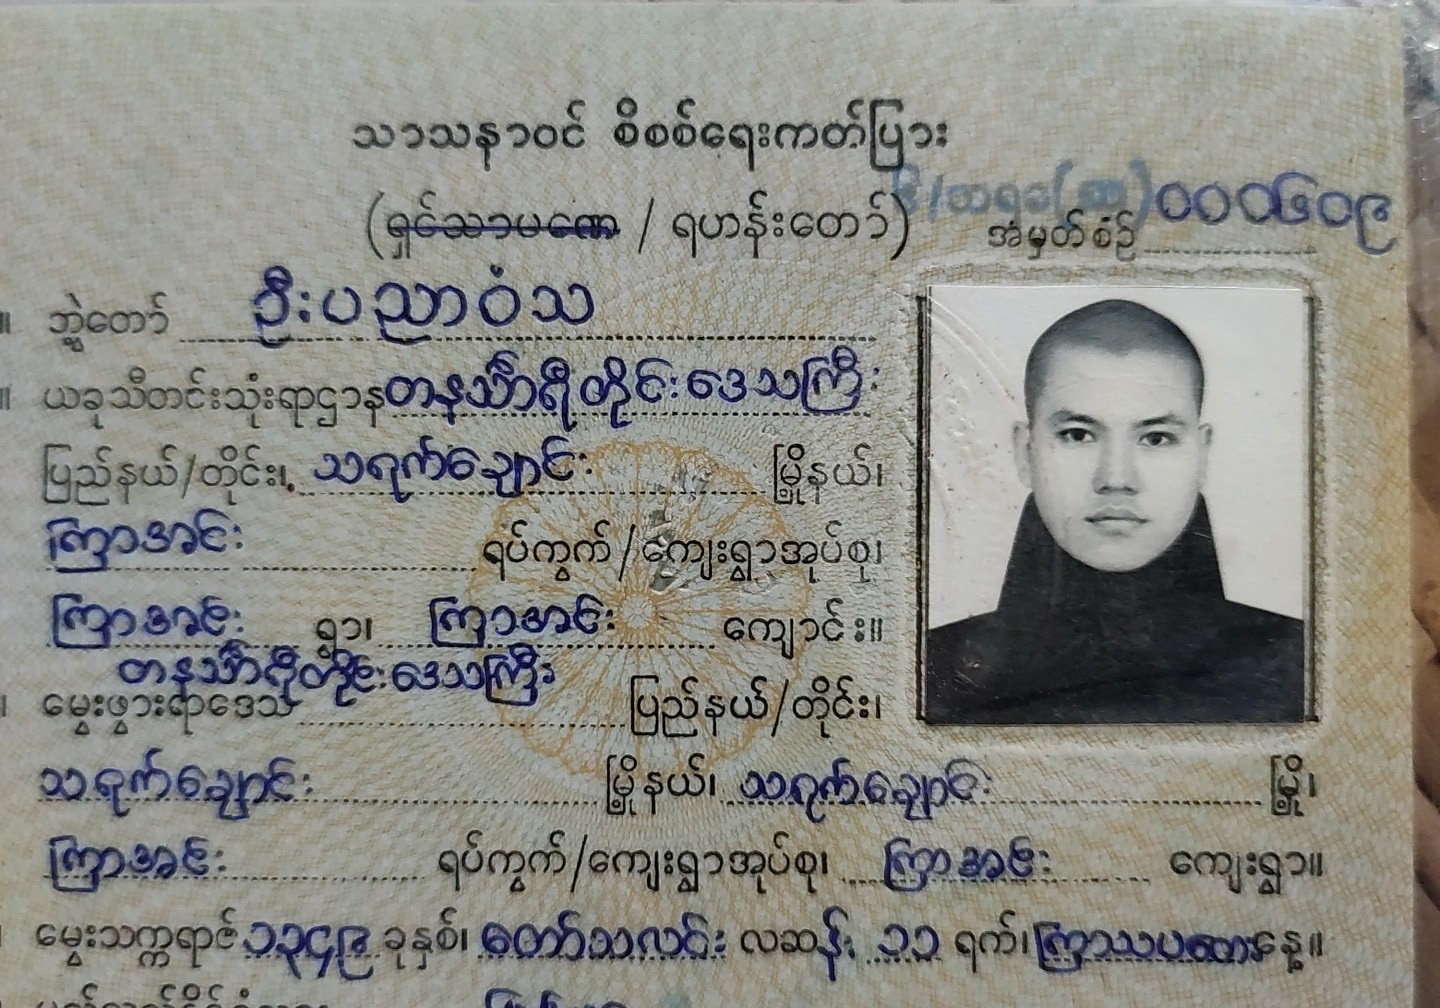 သာသနာဝင် စိစစ်ရေးကတ်ပြား
(ရှင်သာမဏေ / ရဟန်းတော်) ၆/တရခ(သ)၀၀၀၆၀၉
အံမှတ်စဉ်
။ ဘွဲ့တော် ဦးပညာဝံသ
။ ယခုသီတင်းသုံးရာဌာန တနင်္သာရီတိုင်းဒေသကြီး
ပြည်နယ်/တိုင်း၊ သရက်ချောင်း မြို့နယ်၊
ကြာအင်း ရပ်ကွက်/ကျေးရွာအုပ်စု၊
ကြာအင်း ရွာ၊ ကြာအင်း ကျောင်း။
တနင်္သာရီတိုင်းဒေသကြီး
၊ မွေးဖွားရာဒေသ ပြည်နယ်/တိုင်း၊
သရက်ချောင်း မြို့နယ်၊ သရက်ချောင်း မြို့၊
ကြာအင်း ရပ်ကွက်/ကျေးရွာအုပ်စု၊ ကြာအင်း ကျေးရွာ။
မွေးသက္ကရာဇ် ၁၃၄၉ ခုနှစ်၊ တော်သလင်း လဆန်း ၁၁ ရက်၊ ကြာသပတေးနေ့။